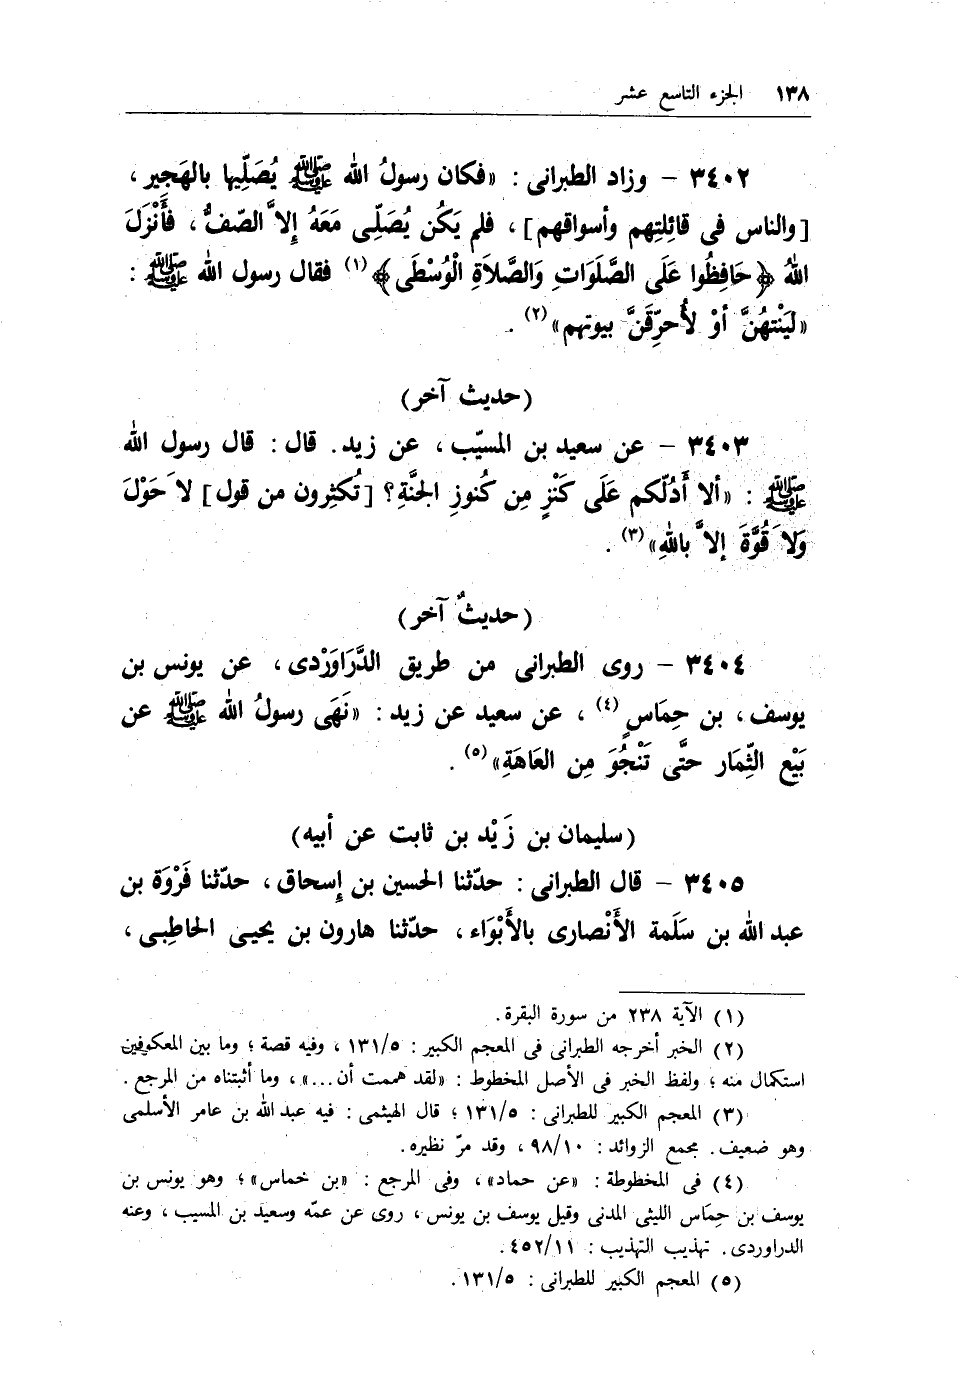 ١٣٨ الجزء التاسع عشر
٣٤٠٢ - وزاد الطبرانى : «فكان رسولُ الله ﷺ يُصَلِّيها بالهَجير ،
[والناس فى قائِلتِهم وأسواقهم] ، فلم يَكُن يُصَلِّى مَعَهُ إِلاَّ الصّفُّ ، فأَنْزَلَ
اللهُ ﴿حَافِظُوا عَلَى الصَّلَوَاتِ وَالصَّلاَةِ الْوُسْطَى﴾(١) فقال رسول الله ﷺ :
«لَيَنْتهُنَّ أوْ لأُحرِّقَنَّ بيوتهم»(٢) .
(حديث آخر)
٣٤٠٣ - عن سعيد بن المسيّب ، عن زيد . قال : قال رسول الله
ﷺ : «ألا أدُلّكم عَلَى كَنْزٍ مِن كُنوزِ الجنَّةِ ؟ [تُكثِرون من قول] لاَ حَوْلَ
وَلاَ قُوَّةَ إلاَّ باللهِ»(٣) .
(حديثٌ آخر)
٣٤٠٤ - روى الطبرانى من طريق الدَّرَاوَرْدى ، عن يونس بن
يوسف ، بن حِمَاسٍ(٤) ، عن سعيد عن زيد : «نَهَى رسولُ الله ﷺ عن
بَيْع الثِّمَار حتَّى تَنْجُوَ مِن العَاهَةِ»(٥) .
(سليمان بن زَيْد بن ثابت عن أبيه)
٣٤٠٥ - قال الطبرانى : حدّثنا الحسين بن إسحاق ، حدّثنا فَرْوَة بن
عبد الله بن سَلَمة الأَنْصارى بالأَبْوَاء ، حدّثنا هارون بن يحيى الحاطِبى ،
(١) الآية ٢٣٨ من سورة البقرة .
(٢) الخبر أخرجه الطبرانى فى المعجم الكبير : ١٣١/٥ ، وفيه قصة ؛ وما بين المعكوفين
استكمال منه ؛ ولفظ الخبر فى الأصل المخطوط : «لقد هممت أن...» ، وما أثبتناه من المرجع .
(٣) المعجم الكبير للطبرانى : ١٣١/٥ ؛ قال الهيثمى : فيه عبد الله بن عامر الأسلمى
وهو ضعيف . مجمع الزوائد : ٩٨/١٠ ، وقد مرّ نظيره .
(٤) فى المخطوطة : «عن حماد» ، وفى المرجع : «بن خماس» ؛ وهو يونس بن
يوسف بن حِمَاس الليثى المدنى وقيل يوسف بن يونس ، روى عن عمّه وسعيد بن المسيب ، وعنه
الدراوردى . تهذيب التهذيب : ٤٥٢/١١ .
(٥) المعجم الكبير للطبرانى : ١٣١/٥ .